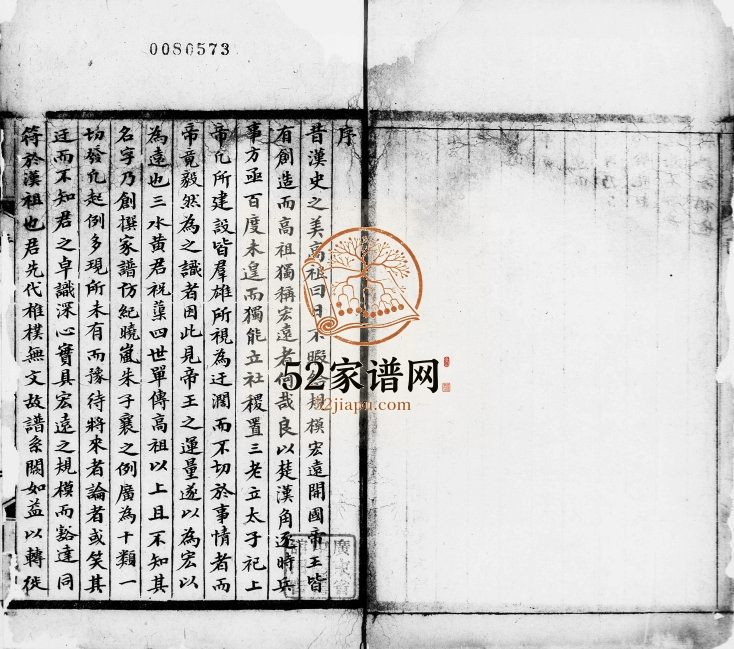 0080573
序
昔漢史之美高祖曰日不暇給規模宏遠開國帝王皆
有創造而高祖獨稱宏遠者何哉良以楚漢角逐時兵
事方亟百度未遑而獨能立社稷置三老立太子祀上
帝凡所建設皆羣雄所視為迂濶而不切於事情者而
帝竟毅然為之識者因此見帝王之運量遂以為宏以
為遠也三水黄君祝蕖四世單傳高祖以上且不知其
名字乃創撰家譜仿紀曉嵐朱子襄之例廣為十類一
切發凡起例多現所未有而豫待將來者論者或笑其
迂而不知君之卓識深心實具宏遠之規模而豁達同
符於漢祖也君先代椎樸無文故譜系闕如益以轉徙
52家谱网
52jiapu.com